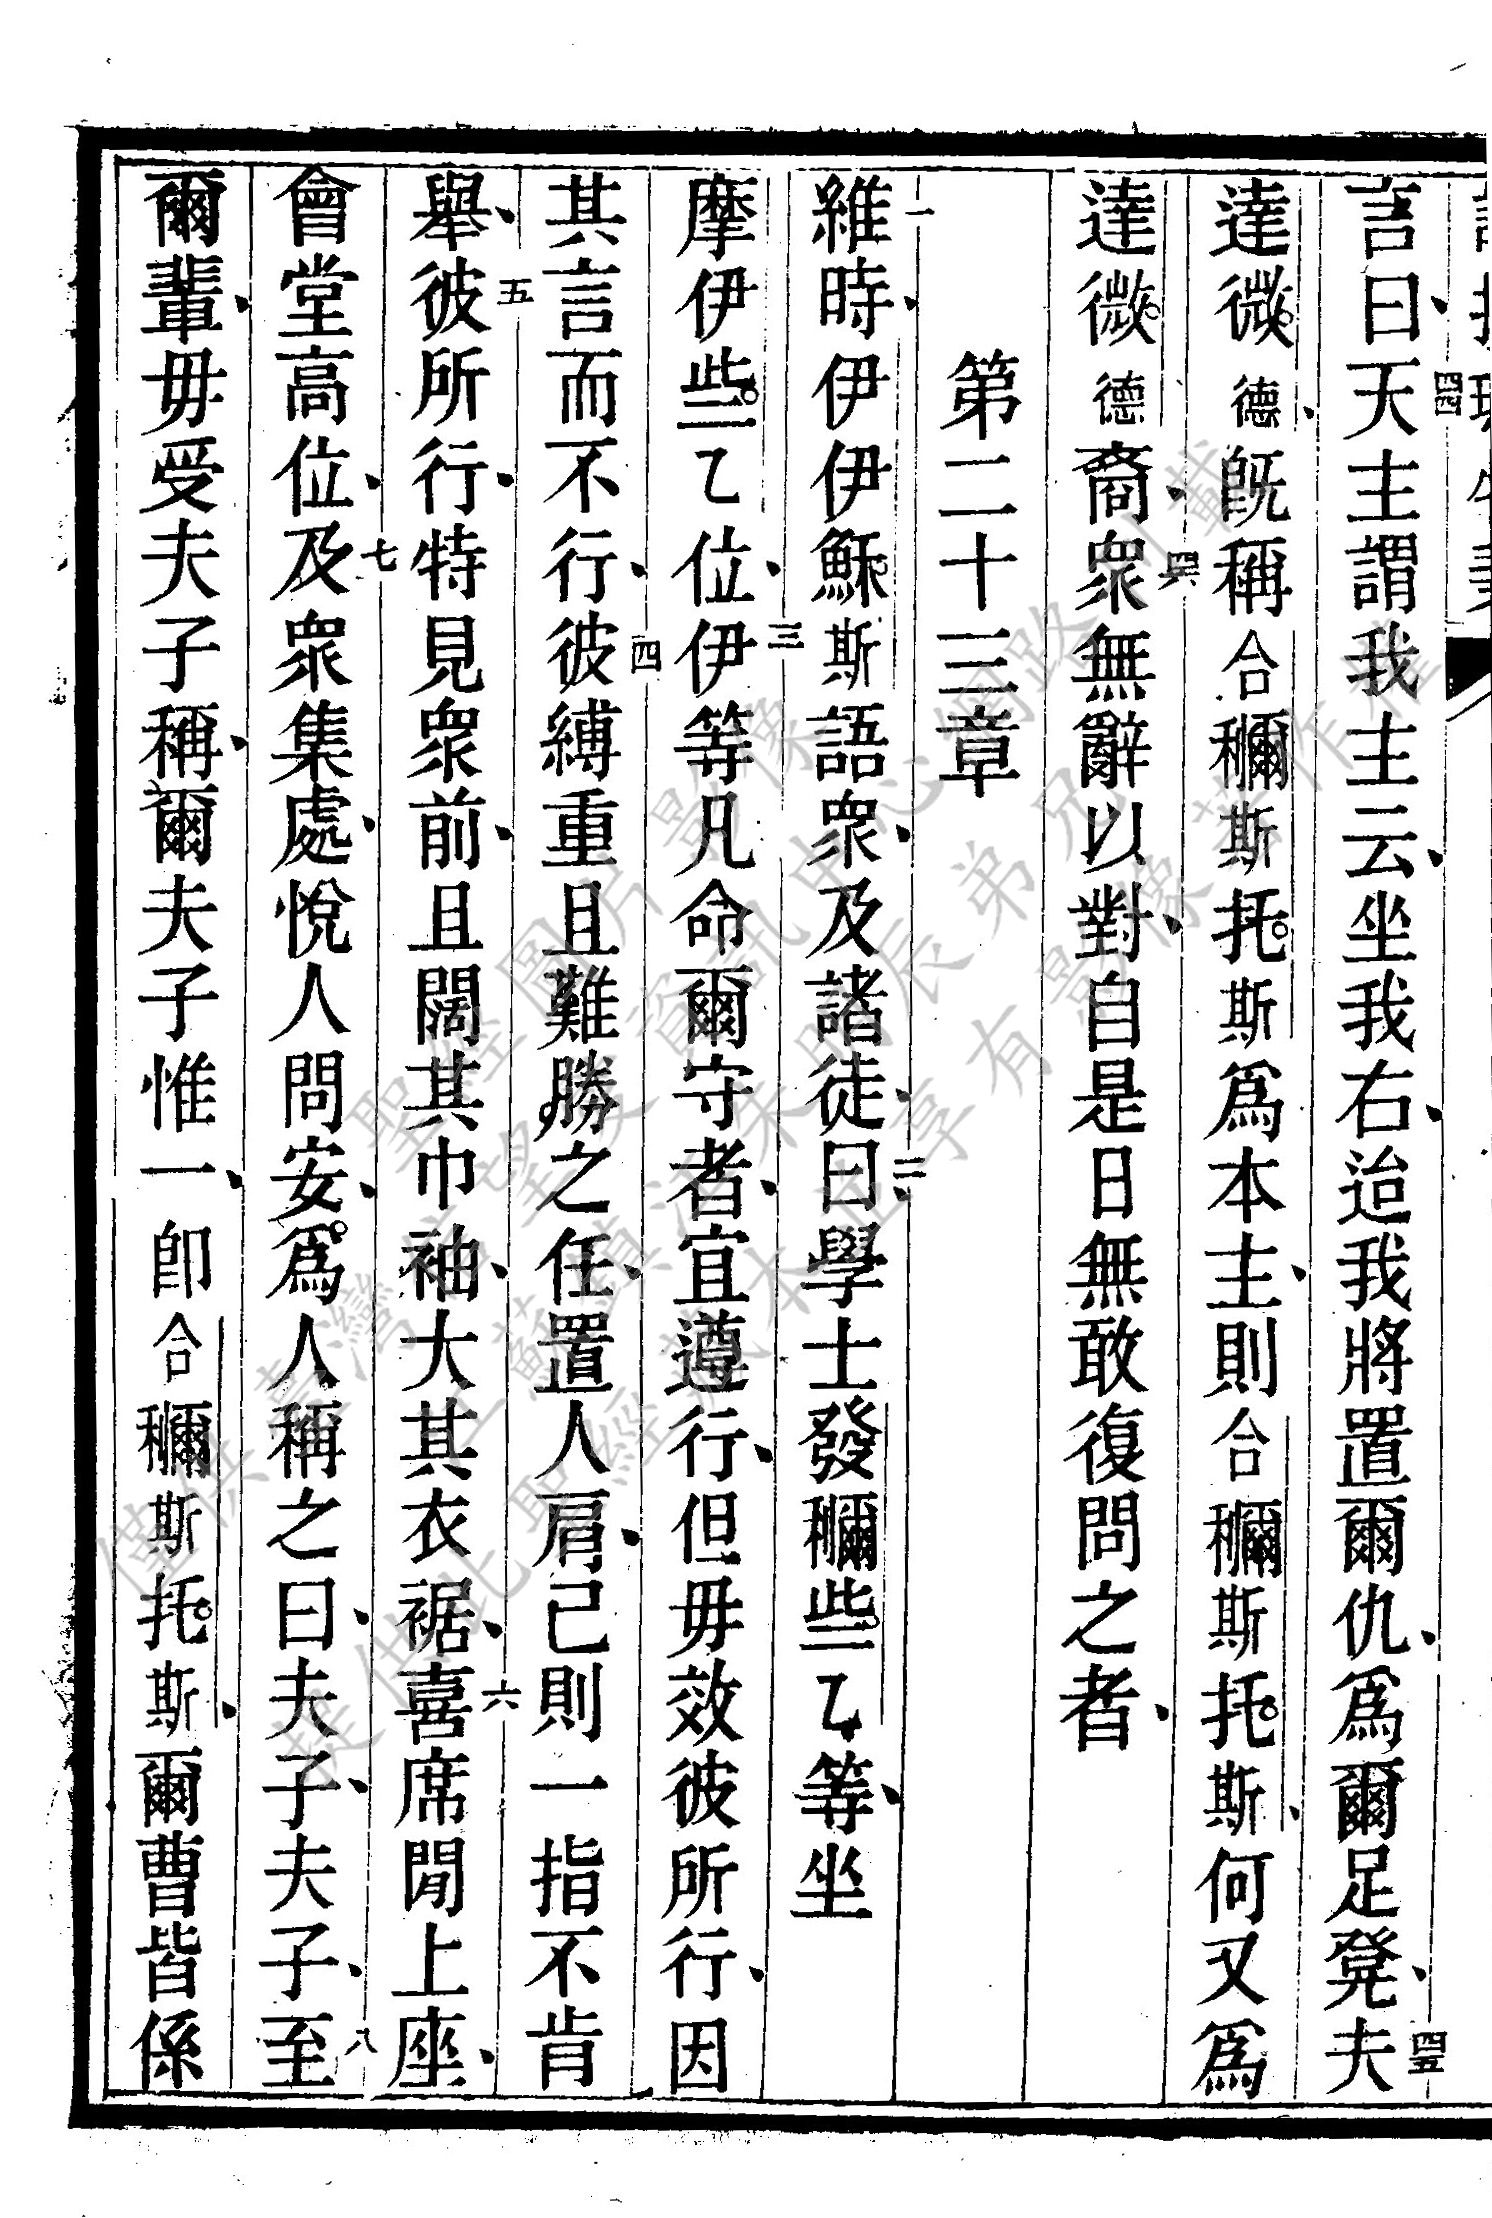 言曰、四四天主謂我主云、坐我右、迨我將置爾仇、爲爾足凳、四五夫
達微。德、旣稱合𥣡斯托。斯爲本主、則合𥣡斯托。斯、何又爲
達微。德裔、四六衆無辭以對、自是日無敢復問之者、
第二十三章
一維時、伊伊穌。斯語衆、及諸徒、二曰、學士發𥣡些。乙等、坐
摩伊些。乙位、三伊等凡命爾守者、宜遵行、但毋效彼所行、因
其言而不行、四彼縛重且難勝之任、置人肩、己則一指不肯
舉、五彼所行、特見衆前、且闊其巾袖、大其衣裾、六喜席閒上座、
會堂高位、七及衆集處、悅人問安、爲。人稱之曰、夫子、夫子、八至
爾輩、毋受夫子稱、爾夫子惟一、卽合𥣡斯托。斯、爾曹皆係
僅供臺灣聖經資訊中心網路刊載